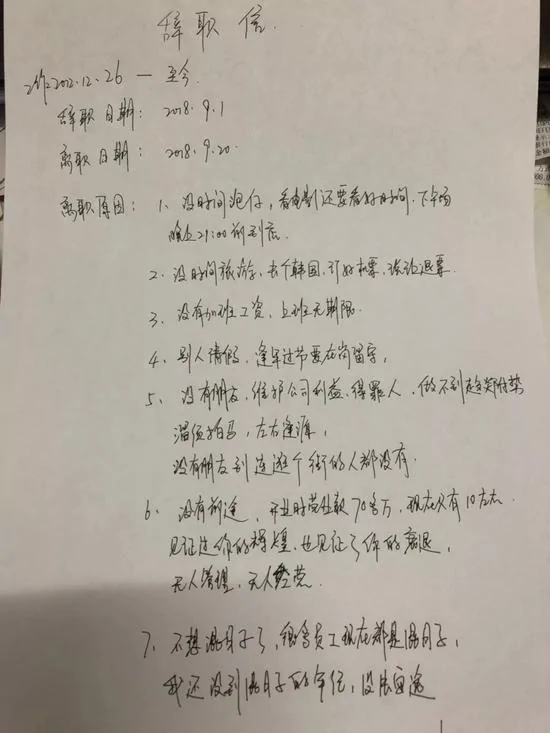 辞职信.
工作: 2012.12.26 — 至今.
辞职日期: 2018.9.1
离职日期: 2018.9.20.
离职原因: 1、没时间泡仔, 看电影还要看好时间. 下午场
晚上21:00前到底.
2、没时间旅游, 去个韩国, 订好机票, 被迫退票.
3、没有加班工资, 上班无期限.
4、别人请假, 逢年过节要在岗留守,
5、没有朋友, 维护公司利益, 得罪人, 做不到趋炎附势
溜须拍马, 左右逢源,
没有朋友到连逛个街的人都没有.
6、没有前途, 开业时营业额70多万, 现在只有10左右.
见证过你的辉煌, 也见证了你的衰退,
无人管理, 无人经营.
7、不想混日子了, 很多员工现在都是混日子,
我还没到混日子的年纪,